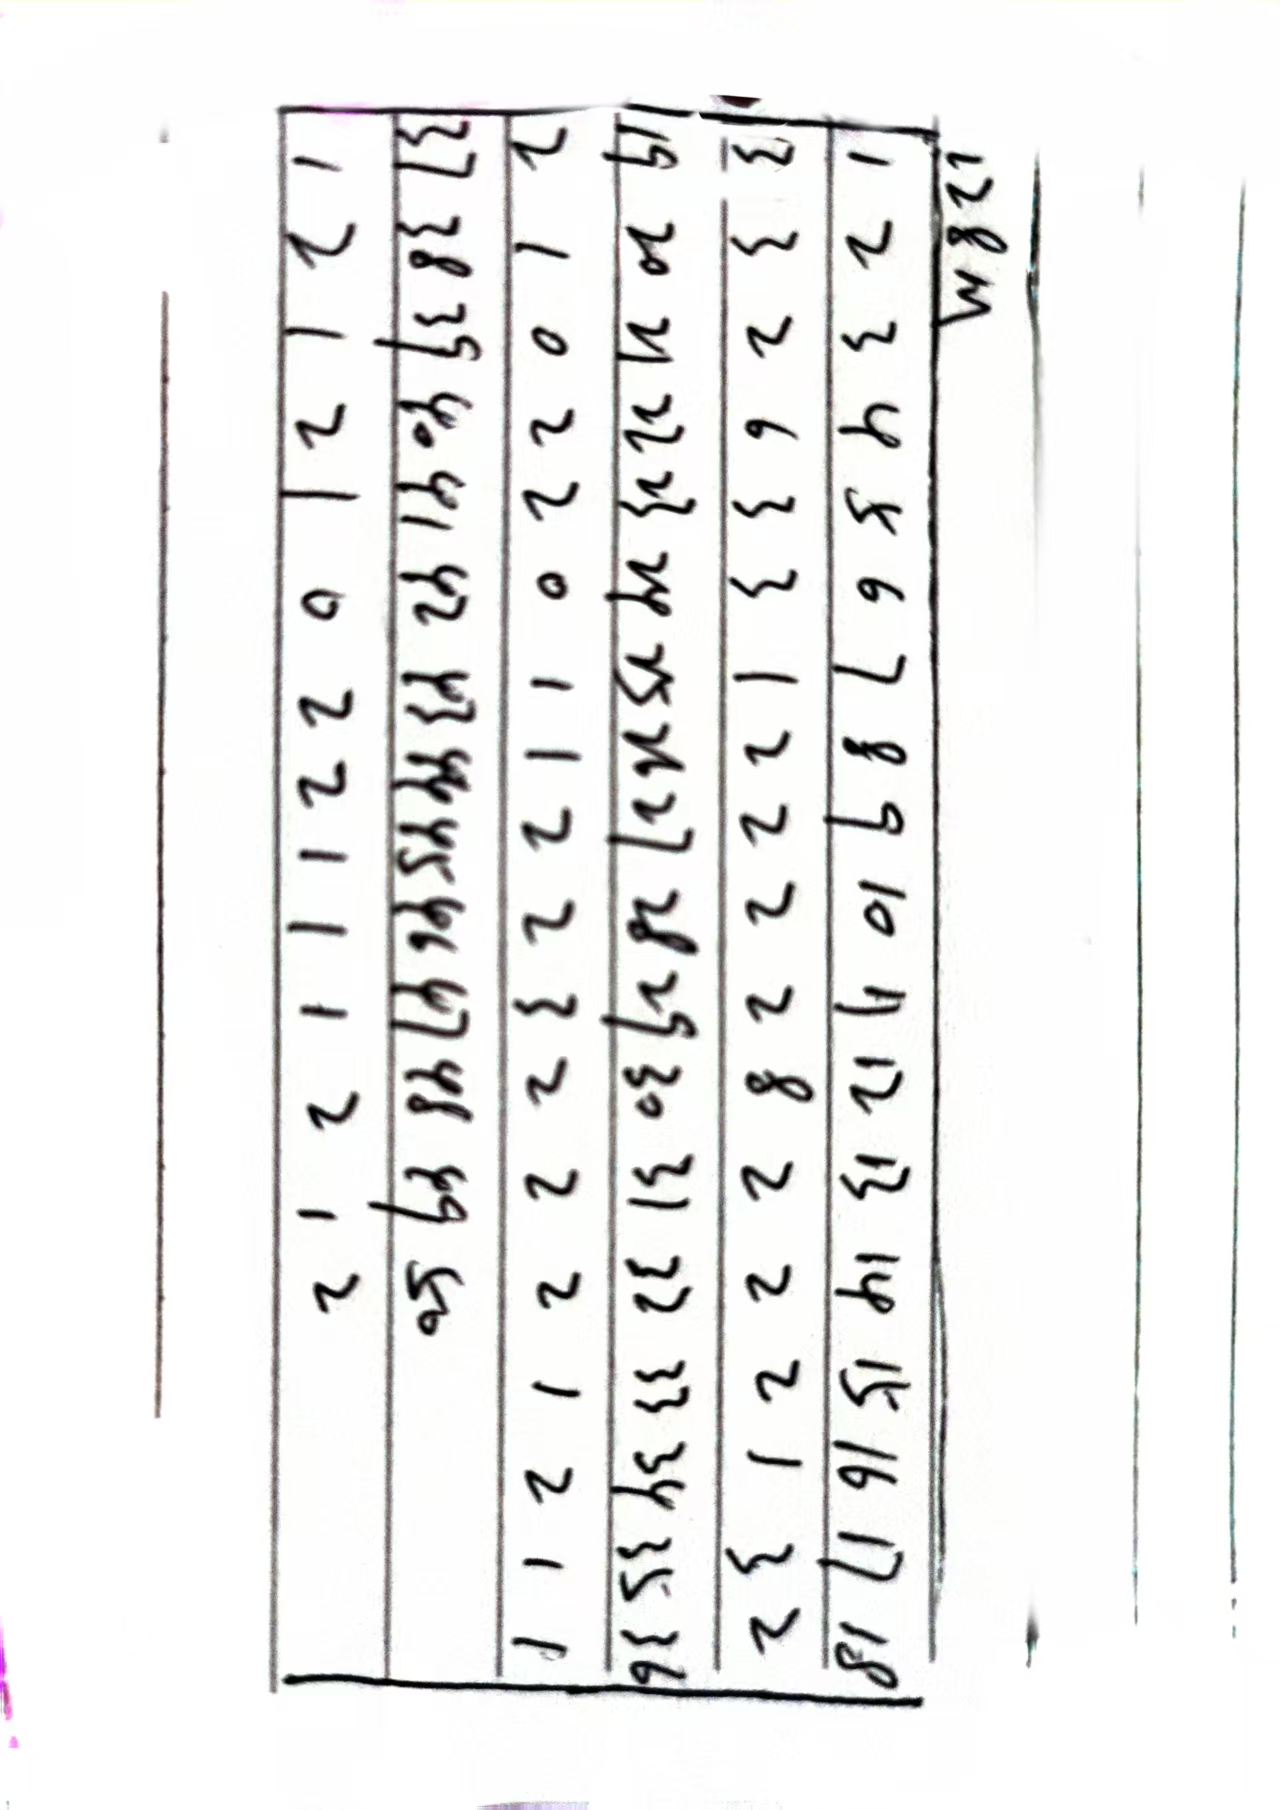 128M
1 2 3 4 5 6 7 8 9 10 11 12 13 14 15 16 17 18
3 3 2 6 3 3 1 2 2 2 2 8 2 2 2 1 3 2
19 20 21 22 23 24 25 26 27 28 29 30 31 32 33 34 35 36
2 1 0 2 2 0 1 1 2 2 3 2 2 2 1 2 1 1
37 38 39 40 41 42 43 44 45 46 47 48 49 50
1 2 1 2 1 0 2 2 1 1 1 2 1 2